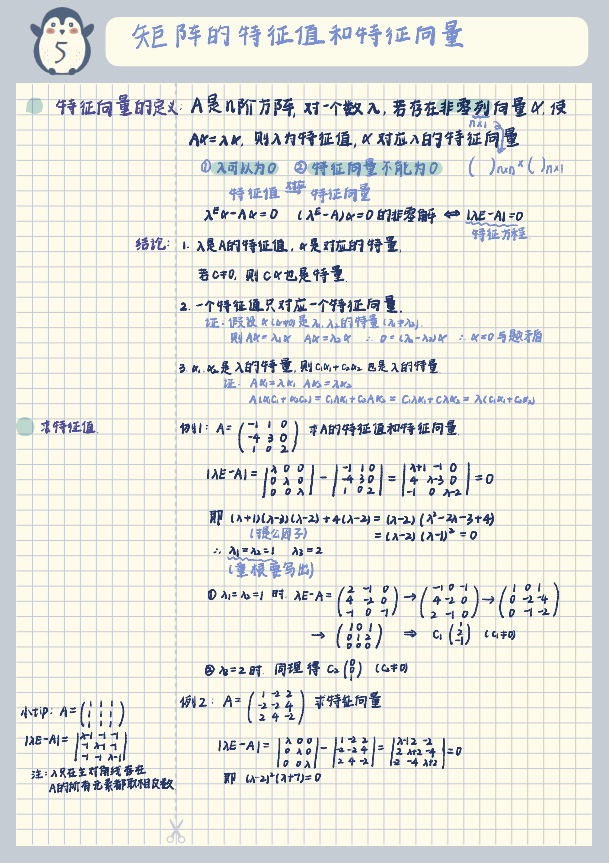 5
矩阵的特征值和特征向量
特征向量的定义: A是n阶方阵, 对一个数λ, 若存在非零列向量α, 使
n×1
Aα=λα, 则λ为特征值, α对应λ的特征向量
①λ可以为0 ②特征向量不能为0 ( )n×n × ( )n×1
特征值 ⇌ 特征向量
λEα-Aα=0 (λE-A)α=0的非零解 ⇔ |λE-A|=0
特征方程
结论: 1. λ是A的特征值, α是对应的特量,
若C≠0, 则Cα也是特量.
2. 一个特征值只对应一个特征向量.
证: 假设α(α≠0)是λ₁,λ₂的特量(λ₁≠λ₂).
则Aα=λ₁α Aα=λ₂α ∴ 0=(λ₁-λ₂)α ∴ α=0与题矛盾
3. α₁, α₂是λ的特量, 则C₁α₁+C₂α₂ 也是λ的特量
证: Aα₁=λα₁ Aα₂=λα₂
A(α₁C₁+α₂C₂)=C₁Aα₁+C₂Aα₂=C₁λα₁+C₂λα₂=λ(C₁α₁+C₂α₂)
求特征值
例1: A=
-1 1 0
-4 3 0
1 0 2
求A的特征值和特征向量
|λE-A|=
λ 0 0
0 λ 0
0 0 λ
-
-1 1 0
-4 3 0
1 0 2
=
λ+1 -1 0
4 λ-3 0
-1 0 λ-2
=0
即 (λ+1)(λ-3)(λ-2)+4(λ-2)=(λ-2)(λ²-2λ-3+4)
(提公因子) =(λ-2)(λ-1)²=0
∴ λ₁=λ₂=1 λ₃=2
(重根要写出)
① λ₁=λ₂=1 时. λE-A=
2 -1 0
4 -2 0
-1 0 -1
→
-1 0 -1
4 -2 0
2 -1 0
→
1 0 1
0 -2 -4
0 -1 -2
→
1 0 1
0 1 2
0 0 0
⇒ C₁
1
2
-1
(C₁≠0)
② λ₃=2时. 同理得 C₂
0
0
1
(C₂≠0)
例2: A=
1 -2 2
-2 -2 4
2 4 -2
求特征向量
|λE-A|=
λ 0 0
0 λ 0
0 0 λ
-
1 -2 2
-2 -2 4
2 4 -2
=
λ-1 2 -2
2 λ+2 -4
-2 -4 λ+2
=0
即 (λ-2)²(λ+7)=0
小tip: A=
1 1 1
1 1 1
1 1 1
|λE-A|=
λ-1 -1 -1
-1 λ-1 -1
-1 -1 λ-1
注: λ只在主对角线存在
A的所有元素都取相反数